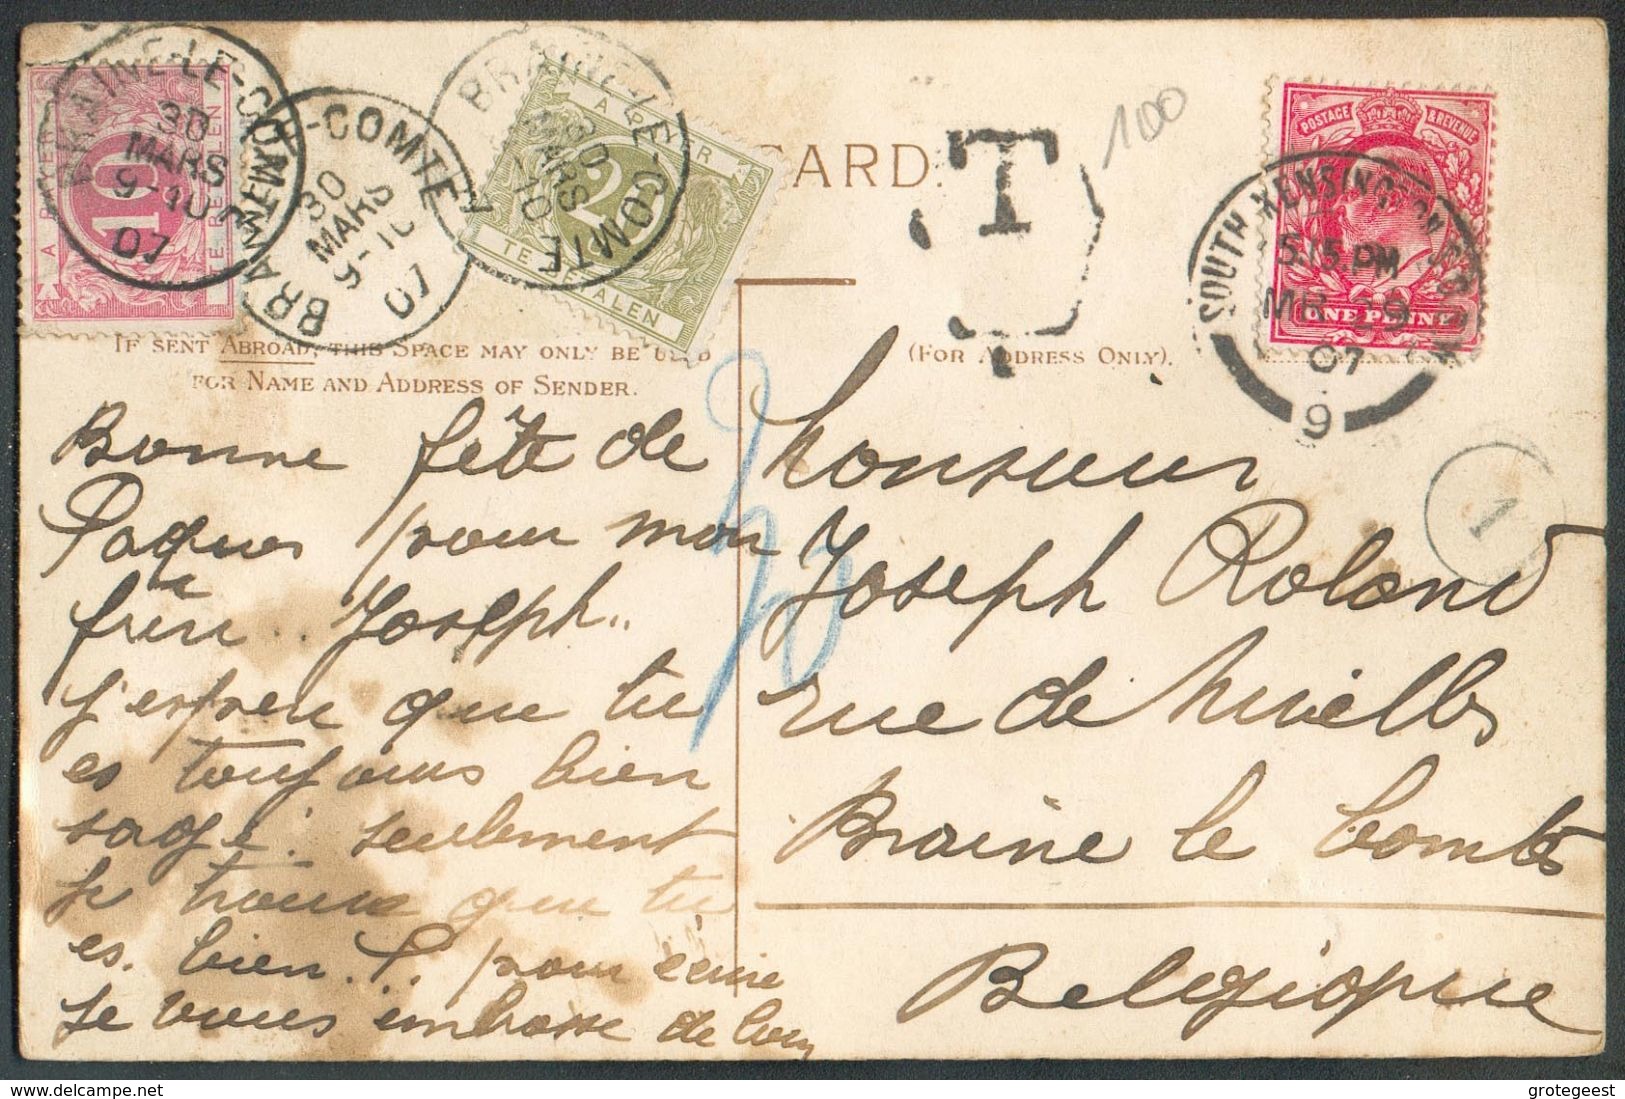 BRAINE-LE-COMTE
30
MARS
9-10
07
A PAYER
10
TE BETALEN
BRAINE-LE-COMTE
30
MARS
9-10
07
BRAINE-LE-COMTE
30
MARS
-10
A PAYER
TE BETALEN
CARD.
T
100
POSTAGE & REVENUE
ONE PENNY
SOUTH KENSINGTON
5.15 PM
MR 29
07
9
IF SENT ABROAD, THIS SPACE MAY ONLY BE USED
FOR NAME AND ADDRESS OF SENDER.
(FOR ADDRESS ONLY).
1
Bonne fête de
Paques pour mon
frère.. Joseph..
j'espère que tu
es toujours bien
sage. seulement
je trouve que tu
es. bien pour
je vous embrasse de
Monsieur
Joseph Roland
rue de Nivelles
Braine le Comte
Belgique
grotegeest